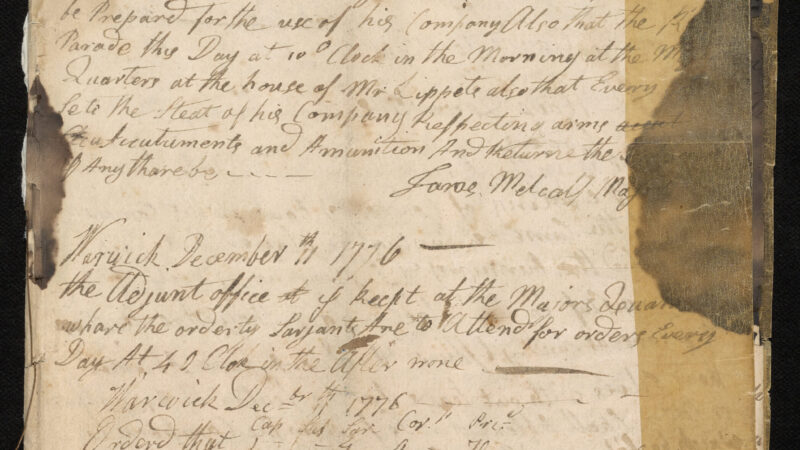 be Prepard for the use of his Company Also that the
Parade this Day at 10 o Clock in the Morning at the
Quarters at the house of Mr Lippets also that Every
Se to the Steat of his Company Respecting arms
and Amunition And Returne the
if Any thare be
Metcalf Maj
Warwick December 11th 1776
the Adjunt office is Keept at the Majors Quar
whare the orderty Sarjants Are to Attend for orders Every
Day At 4 O Clok in the After none
Warwick Decr 11th 1776
Cap Sus Sgr Cor. Pri
Orderd that